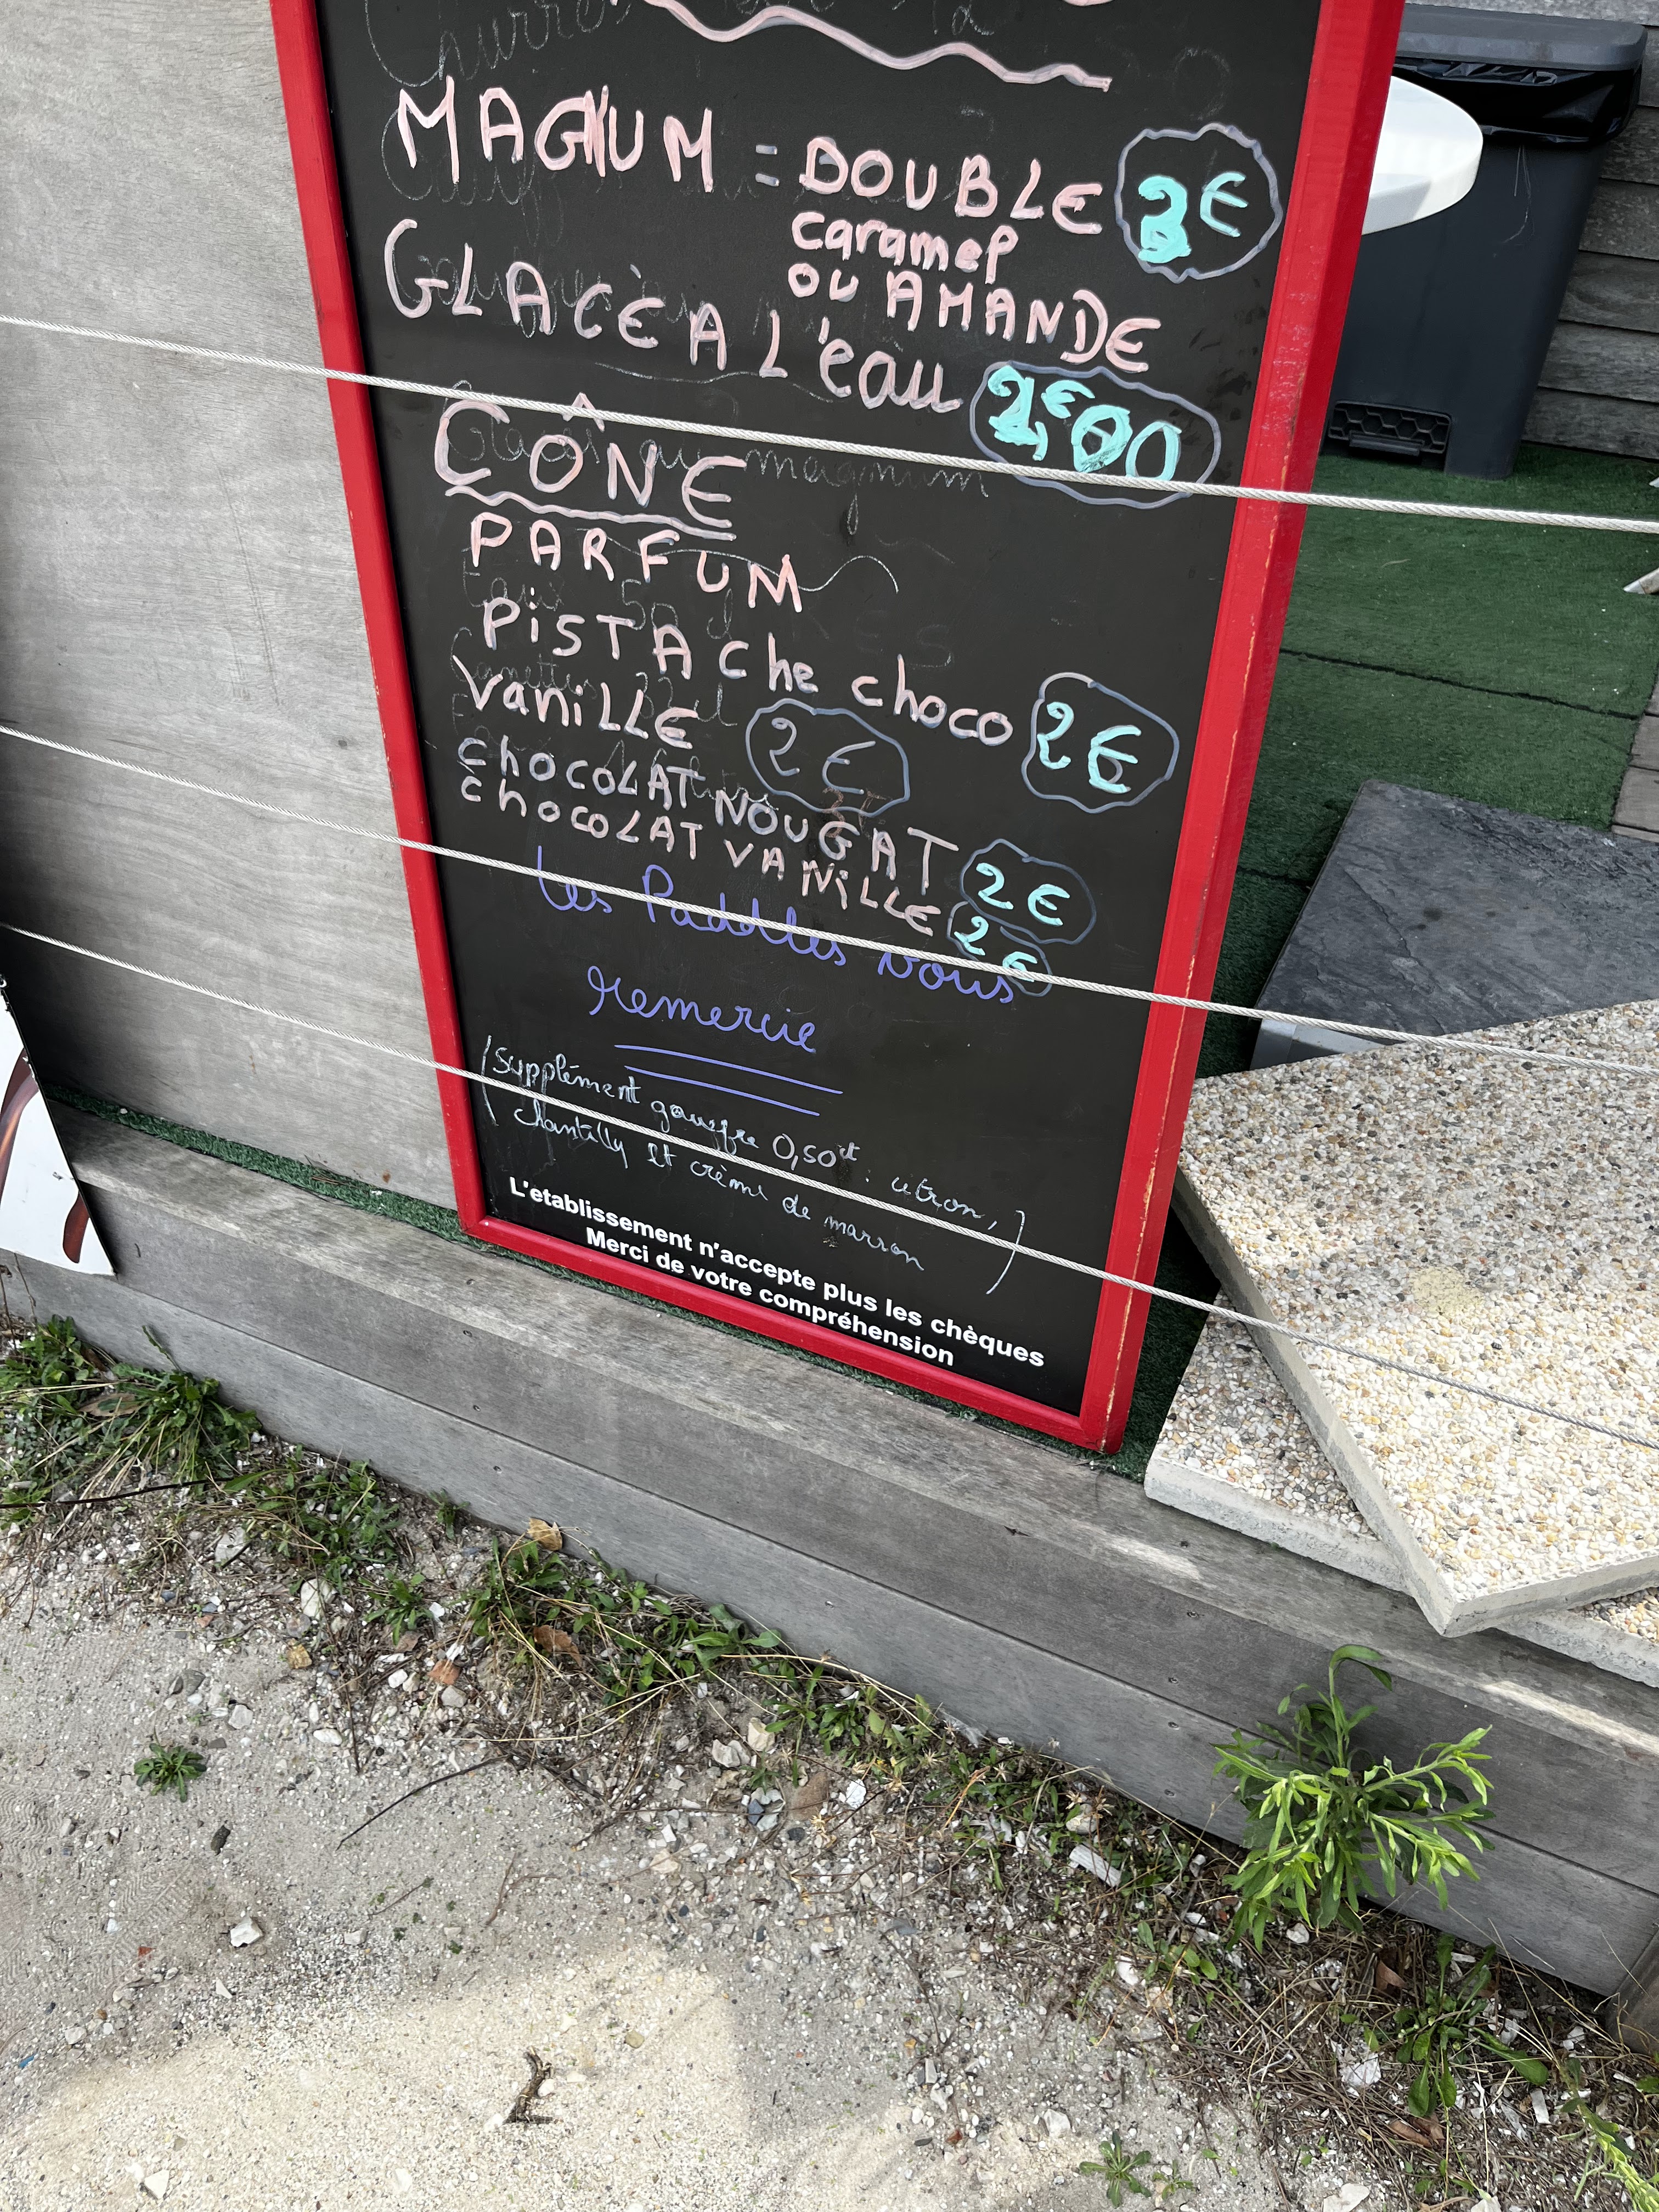 MAGNUM = DOUBLE 3€
caramel
ou AMANDE
GLACÈ A L'eau 2,€00
CÔNE
PARFUM
PiSTAche choco 2€
vaniLLE 2€
chocoLAT NOUGAT 2€
chocoLAT VANiLLE 2€
Les Paddles vous
remercie
(Supplément gauffre 0,50ct : citron,
chantilly et crème de marron)
L'etablissement n'accepte plus les chèques
Merci de votre compréhension